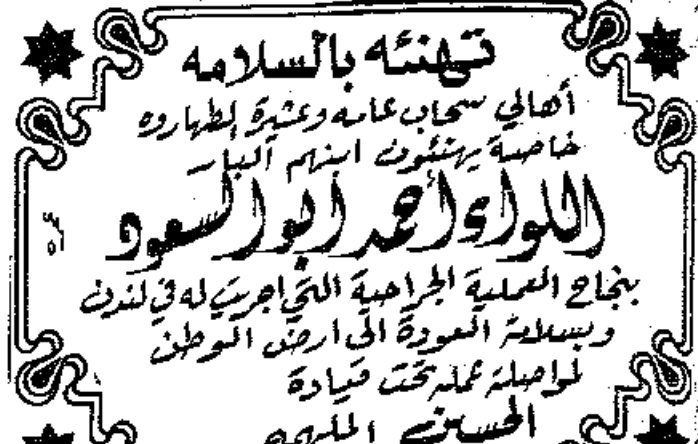 تهنئه بالسلامه
أهالي سحاب عامه وعشيرة الطهاروه
خاصة يهنئون ابنهم البار
اللواء أحمد ابو السعود
بنجاح العملية الجراحية التي اجريت له في لندن
وبسلامة العودة الى ارض الوطن
لمواصلة عمله تحت قيادة
الحسين الملهمه